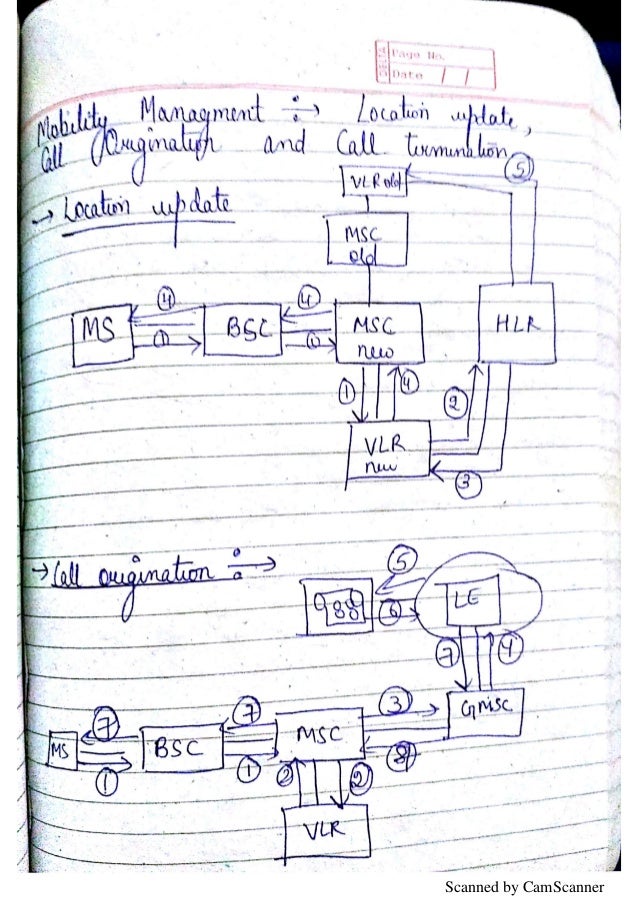 Page No.
Date / /
Mobility Managment ÷→ Location update,
Call Origination and Call termination
→ Location update
VLR old
⑤
MSC
old
MS
④
①
BSC
④
①
MSC
new
HLR
①
④
②
VLR
new
③
→ Call origination ÷→
⑤
⑥
LE
⑦
④
GMSC
MS
⑦
①
BSC
⑦
①
MSC
③
⑧
②
②
VLR
Scanned by CamScanner